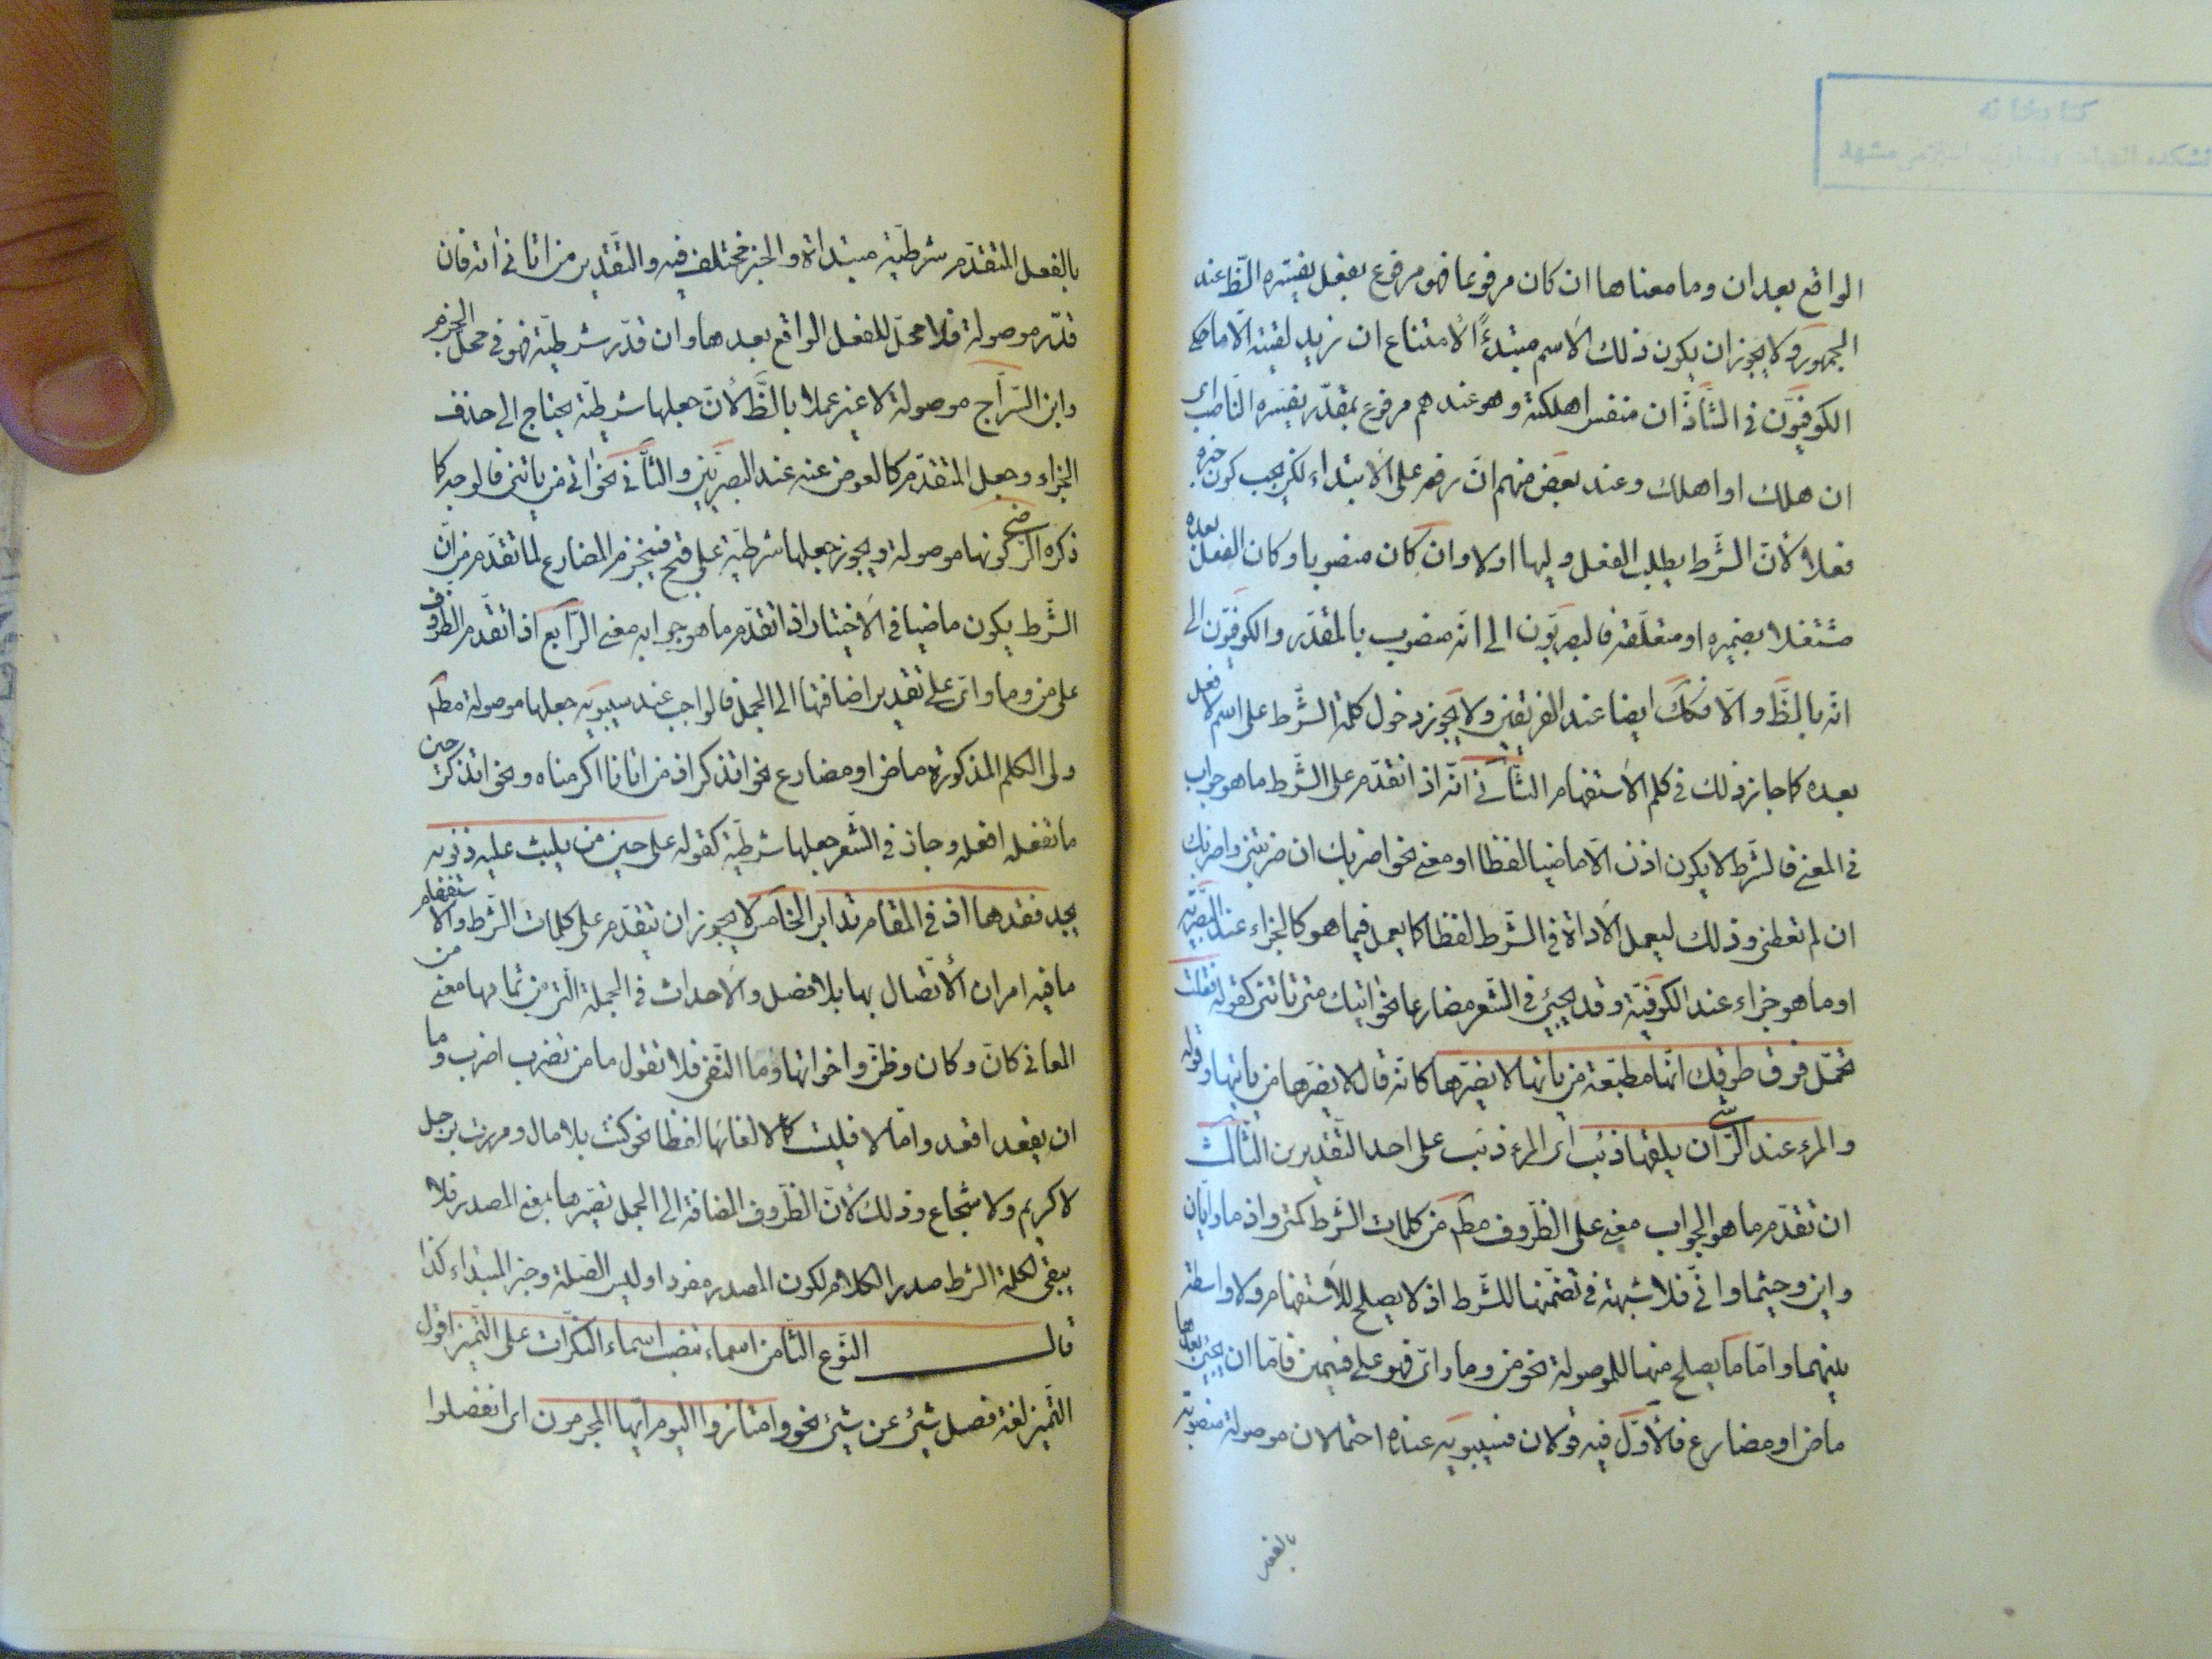 الواقع بعد ان وما معناها ان كان مرفوعا فهو مرفوع بفعل يفسّره الظّ عند
الجمهور ولا يجوز ان يكون ذلك الاسم مبتدءً لامتناع ان زيد لقيته الا ما حكى
الكوفيّون في الشّاذّ ان منفس اهلكته وهو عندهم مرفوع بمقدّر يفسّره النّاصب اى
ان هلك او اهلك وعند بعض منهم انّ رفعه على الابتداء لكن يجب كون خبره
فعلا لانّ الشّرط يطلب الفعل وليها اولا وان كان منصوبا وكان الفعل بعده
مشتغلا بضميره او متعلّقه فالبصريّون الى انّه منصوب بالمقدّر والكوفيّون الى
انّه بالظّ والّا فكك ايضا عند الفريقين ولا يجوز دخول كلمة الشّرط على اسم لا فعل
بعده كما جاز ذلك في كلم الاستفهام الثّاني انّه اذا تقدّم على الشّرط ما هو جواب
في المعنى فالشّرط لا يكون اذن الّا ماضيا لفظا او معنى نحو اضربك ان ضربتنى واضربك
ان لم تعطنى وذلك ليعمل الاداة في الشّرط لفظا كما يعمل فيما هو كالجزاء عند البصريّة
او ما هو جزاء عند الكوفيّة وقد يجيئ في الشّعر مضارعا نحو اتيك متى تاتنى كقوله فقلت
تحمّل فوق طوقك انّها مطبّعة من ياتها لا يضرّها كانّه قال لا يضرّها من ياتها وقوله
والمرء عند الرّشى ان يلقها ذئب اى المرء ذئب على احد التّقديرين الثّالث
ان تقدّم ما هو الجواب معنى على الظّروف مطّ من كلمات الشّرط كمتى واذ ما وايّان
واين وحيثما وانّى فلا شبهة في تضمّنها للشّرط اذ لا يصلح للاستفهام ولا واسطة
بينهما وامّا ما يصلح منها للموصولة نحو من وما واىّ فهو على قسمين فامّا ان يجيئ بعدها
ماض او مضارع فالاوّل فيه قولان فسيبويه عنده احتمالان موصولة منصوبة
بالفعل
بالفعل المتقدّم شرطيّة مبتداة والخبر مختلف فيه والتّقدير من اتانى اته فان
قدّر موصولة فلا محلّ للفعل الواقع بعدها وان قدّر شرطيّة فهو في محلّ الجزم
وابن السّراج موصولة لا غير عملا بالظّ لانّ جعلها شرطيّة يحتاج الى حذف
الجزاء وجعل المتقدّم كالعوض عنه عند البصريّين والثّاني نحو اتى من ياتنى فالوجه كما
ذكره الرّضى كونها موصولة ويجوز جعلها شرطيّة على قبح فينجزم المضارع لما تقدّم من انّ
الشّرط يكون ماضيا في الاختيار اذا تقدّم ما هو جوابه معنى الرّابع اذا تقدّم الظّرف
على من وما واىّ على تقدير اضافتها الى الجمل فالواجب عند سيبويه جعلها موصولة مطّ
ولى الكلم المذكورة ماض او مضارع نحو اتذكر اذ من اتانا اكرمناه ونحو اتذكر حين
ما تفعله افعله وجاز في الشّعر جعلها شرطيّة كقوله على حين من يلبث عليه ذنوبه
يجد فقدها اذ في المقام تدابر الخامس لا يجوز ان يتقدّم على كلمات الشّرط والاستفهام
ما فيه امران الاتّصال بها بلا فصل والاحداث في الجملة الّتى من تمامها معنى من
المعاني كانّ وكان وظنّ واخواتها وما النّفى فلا تقول ما من تضرب اضرب وما
ان يقعد اقعد وامّا لا فليت كلا لالغائها لفظا نحو كنت بلا مال ومررت برجل
لا كريم ولا شجاع وذلك لانّ الظّروف المضافة الى الجمل تصيّرها بمعنى المصدر فلا
يبقى لكلمة الشّرط صدر الكلام لكون المصدر مفردا وليس الصّلة وخبر المبتداء كذا
قال النّوع الثّامن اسماء تنصب اسماء النّكرات على التّميز اقول
التّميز لغة فصل شيئ عن شيئ نحو وامتازوا اليوم ايّها المجرمون اى انفصلوا